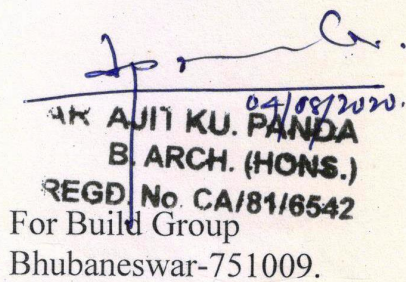 04/08/2020.
AR AJIT KU. PANDA
B. ARCH. (HONS.)
REGD. No. CA/81/6542
For Build Group
Bhubaneswar-751009.